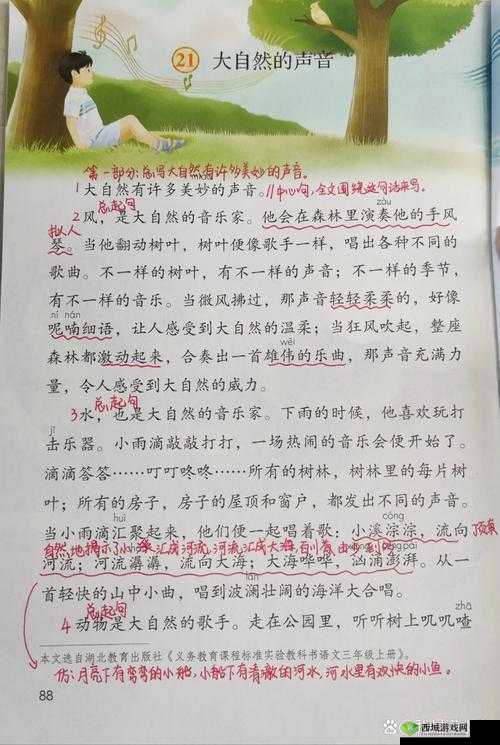 21 大自然的声音
第一部分:总写大自然有许多美妙的声音。
1大自然有许多美妙的声音。//中心句,全文围绕这句话来写。
总起句
zòu
2风,是大自然的音乐家。他会在森林里演奏他的手风
拟人
琴。当他翻动树叶,树叶便像歌手一样,唱出各种不同的
歌曲。不一样的树叶,有不一样的声音;不一样的季节,
有不一样的音乐。当微风拂过,那声音轻轻柔柔的,好像
ní nán
呢喃细语,让人感受到大自然的温柔;当狂风吹起,整座
wěi
森林都激动起来,合奏出一首雄伟的乐曲,那声音充满力
量,令人感受到大自然的威力。
总起句
3水,也是大自然的音乐家。下雨的时候,他喜欢玩打
jī
击乐器。小雨滴敲敲打打,一场热闹的音乐会便开始了。
滴滴答答……叮叮咚咚……所有的树林,树林里的每片树
叶;所有的房子,房子的屋顶和窗户,都发出不同的声音。
huì cóng
当小雨滴汇聚起来,他们便一起唱着歌:小溪淙淙,流向
顶真
自然地揭示了小溪汇成河流,河流汇成大海,百川
péng pài
河流;河流潺潺,流向大海;大海哗哗,汹涌澎湃。从一
lán
首轻快的山中小曲,唱到波澜壮阔的海洋大合唱。
总起句
zhā
4动物是大自然的歌手。走在公园里,听听树上叽叽喳
本文选自湖北教育出版社《义务教育课程标准实验教科书语文三年级上册》。
仿:月亮下有弯弯的小船,小船下有清澈的河水,河水里有欢快的小鱼。
88
西城游戏网